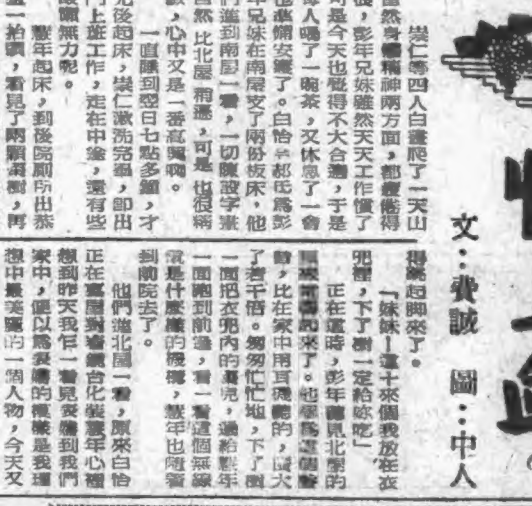 文：費誠　圖：中人
崇仁等四人白晝爬了一天山
當然身體精神兩方面，都疲倦得
彭年兄妹雖然天天工作慣了
可是今天也覺得不大合適，于是
每人喝了一碗茶，又休息了一會
也準備安寢了。白怡　郝氏爲彭
年兄妹在南屋支了兩份板床，他
們進到南屋一看，一切陳設字畫
然比北屋稍遜，可是也很稱
，心中又是一番高興啊。
一直睡到翌日七點多鐘，才
先後起床，崇仁漱洗完畢，即出
門上班工作，走在中途，還有些
疲懶無力呢。
慧年起床，到後院廁所出恭
一抬頭，看見了兩顆棗樹，再
得跳起脚來了。
「妹妹！這十來個我放在衣
兜裡，下了樹一定給妳吃」
正在這時，彭年聽見北屋的
起來了。
音，比在家中用耳機聽的，高大
了若干倍。匆匆忙忙地，下了樹
一面把衣兜內的棗兒，遞給慧年
一面跑到前邊，看一看這個無線
電是什麼樣的機構，慧年也隨着
到前院去了。
他們進北屋一看，原來白怡
正在窗前對着鏡台化裝慧年心裡
想到昨天我乍一看見表嬸到我們
家中，便以爲表嬸的模樣是我理
想中最美麗的一個人物，今天又